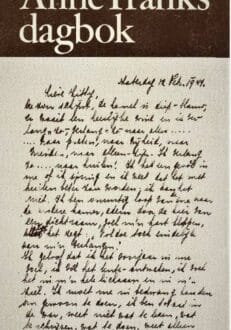 Anne Franks
dagbok
Zaterdag 12 Febr. 1944.
Lieve Kitty,
De zon schijnt, de hemel is diep-blauw,
er waait een heerlijke wind en ik ver-
lang zo - verlang zo - naar alles .....
.... Naar praten, naar vrijheid, naar
vrienden, naar alleen-zijn. Ik verlang
zo .... naar huilen! Ik heb een gevoel in
me of ik spring en ik weet dat het met
huilen beter zou worden; ik kan het
niet. Ik ben onrustig, loop van de ene naar
de andere kamer, adem door de kier van
een dicht raam, voel m'n hart kloppen,
alsof het zegt: Voldoe toch eindelijk
aan m'n verlangens!
Ik geloof dat ik het voorjaar in me
voel, ik voel het lente-ontwaken, ik voel
het in m'n hele lichaam en in m'n
ziel. Ik moet me in bedwang houden
om gewoon te doen, ik ben totaal in
de war, weet niet wat te lezen, wat
te schrijven, wat te doen, weet alleen